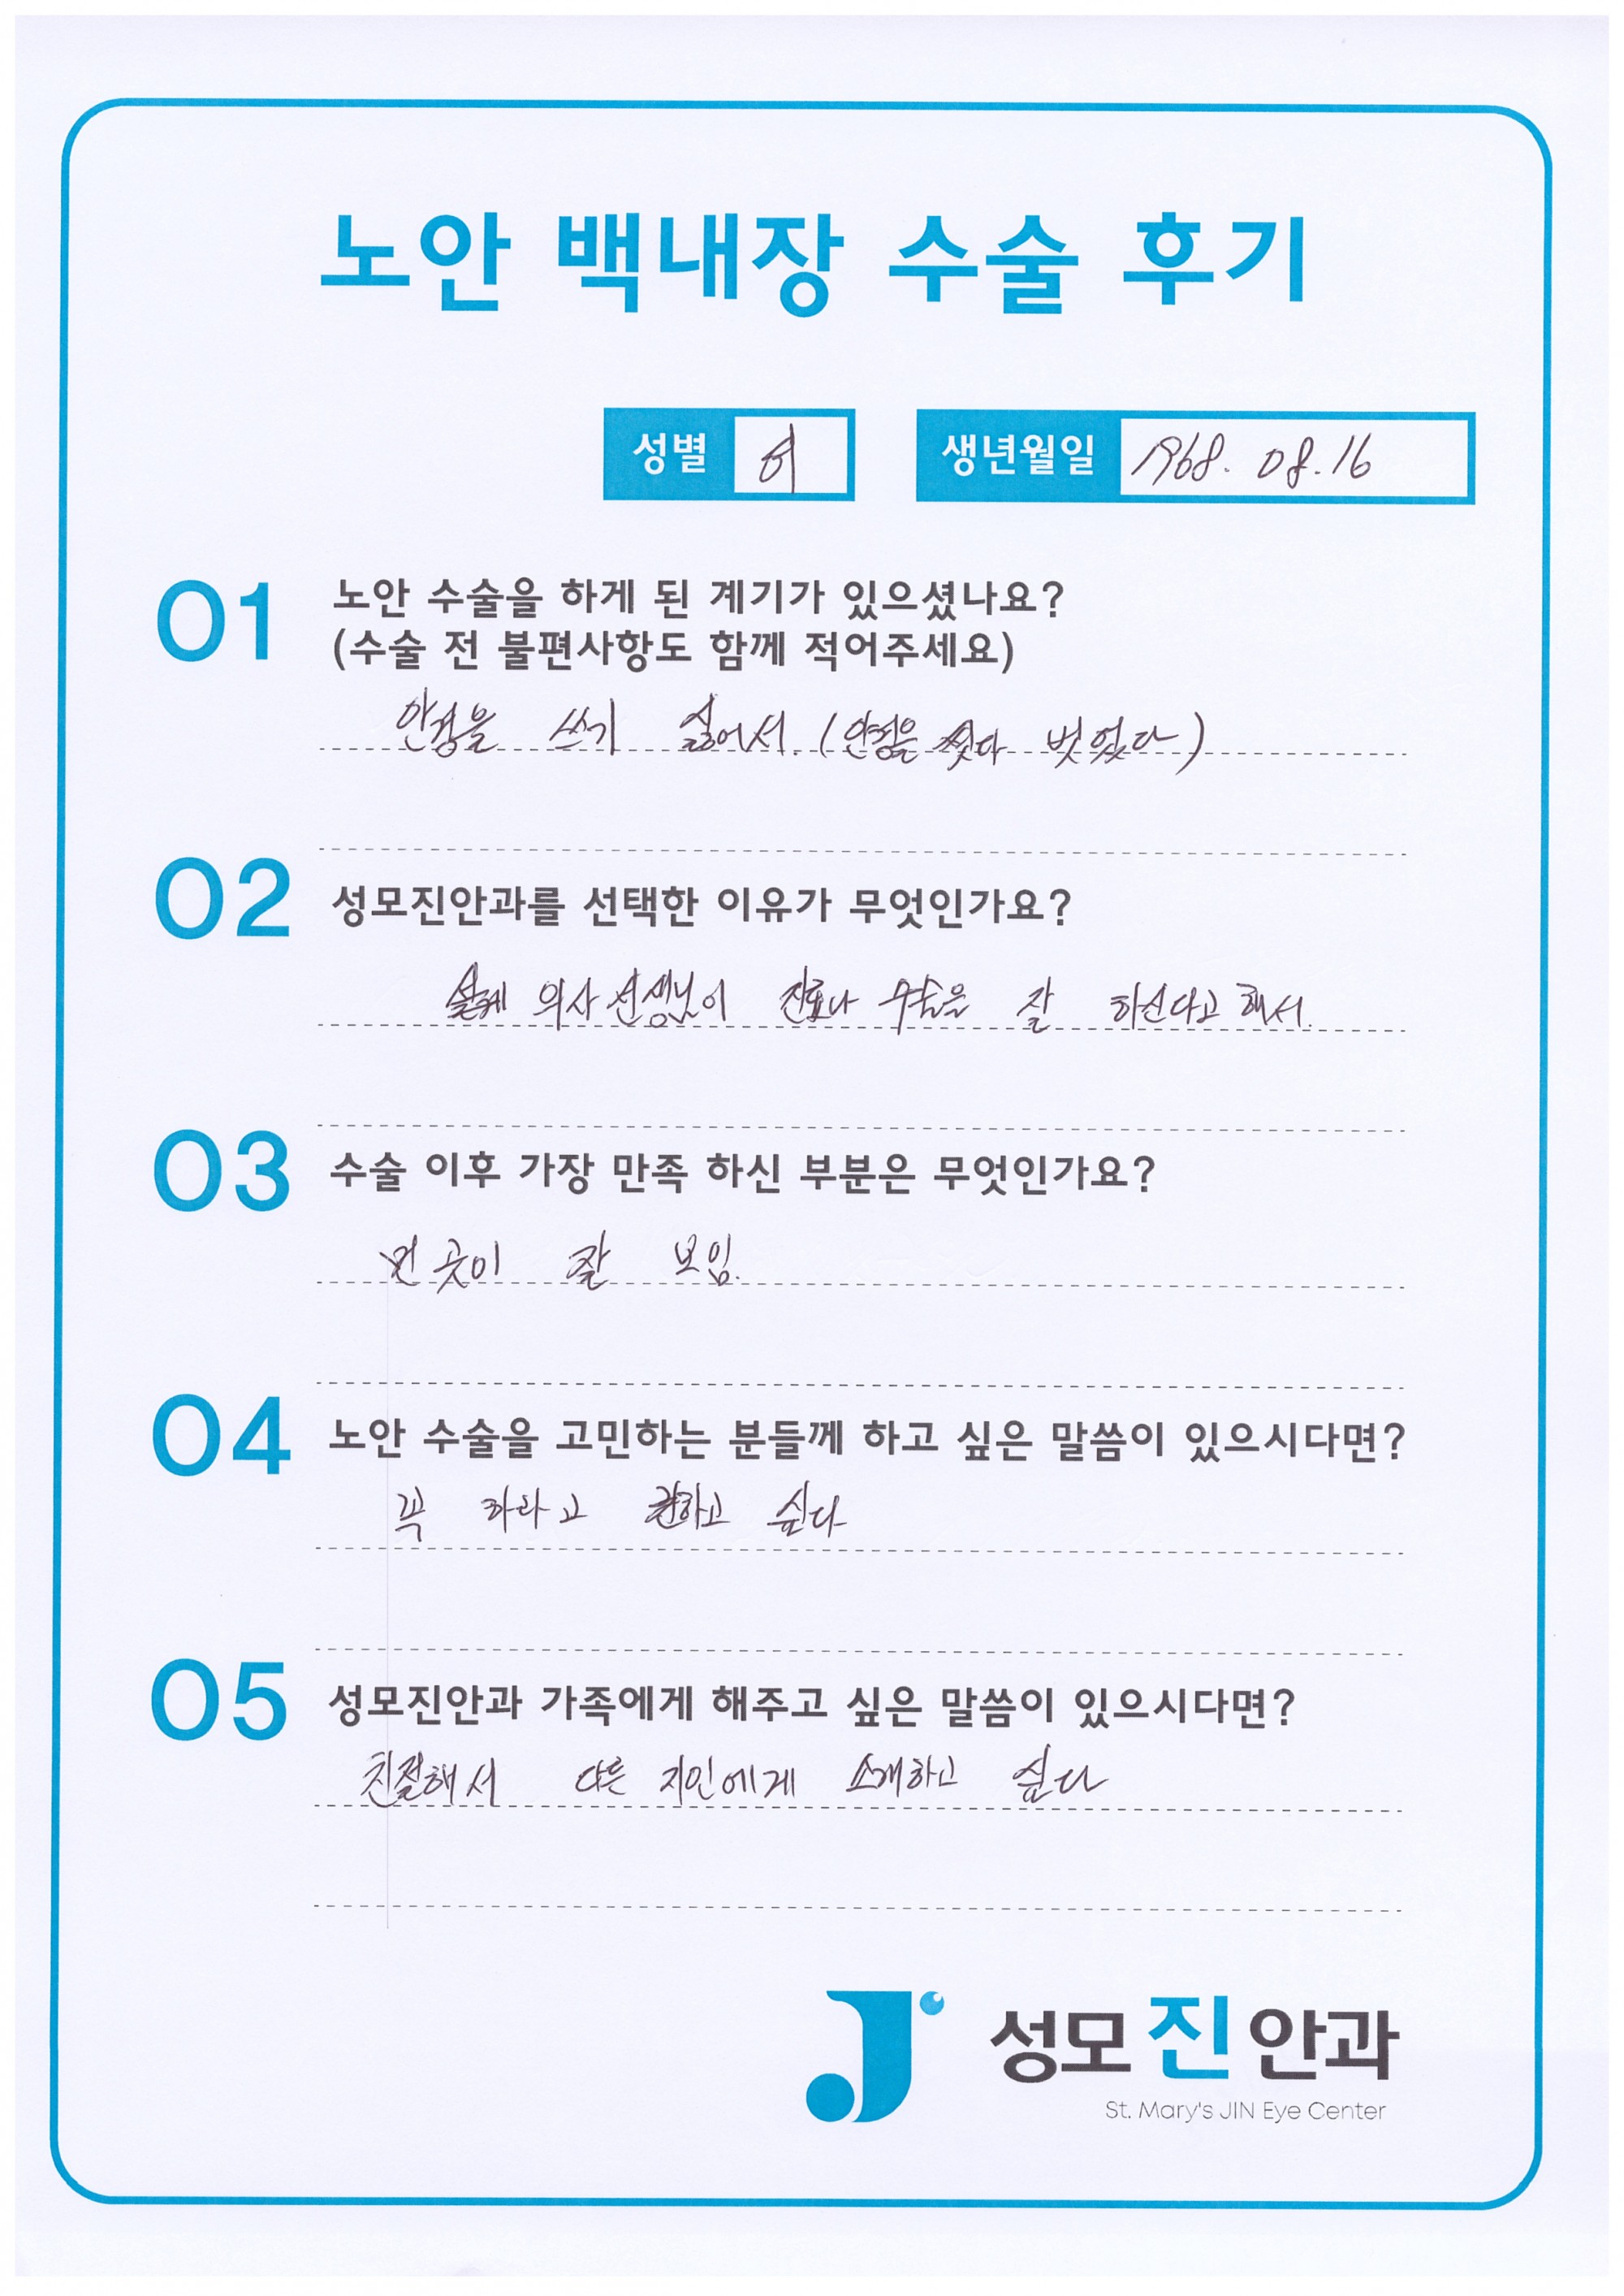 노안 백내장 수술 후기
성별 여 생년월일 1968. 08. 16
01 노안 수술을 하게 된 계기가 있으셨나요?
(수술 전 불편사항도 함께 적어주세요)
안경을 쓰기 싫어서. (안경을 썼다 벗었다)
02 성모진안과를 선택한 이유가 무엇인가요?
의사 선생님이 진료나 수술을 잘 하신다고 해서.
03 수술 이후 가장 만족 하신 부분은 무엇인가요?
먼 곳이 잘 보임.
04 노안 수술을 고민하는 분들께 하고 싶은 말씀이 있으시다면?
꼭 하라고 권하고 싶다
05 성모진안과 가족에게 해주고 싶은 말씀이 있으시다면?
친절해서 다른 지인에게 소개하고 싶다
성모진안과
St. Mary's JIN Eye Center